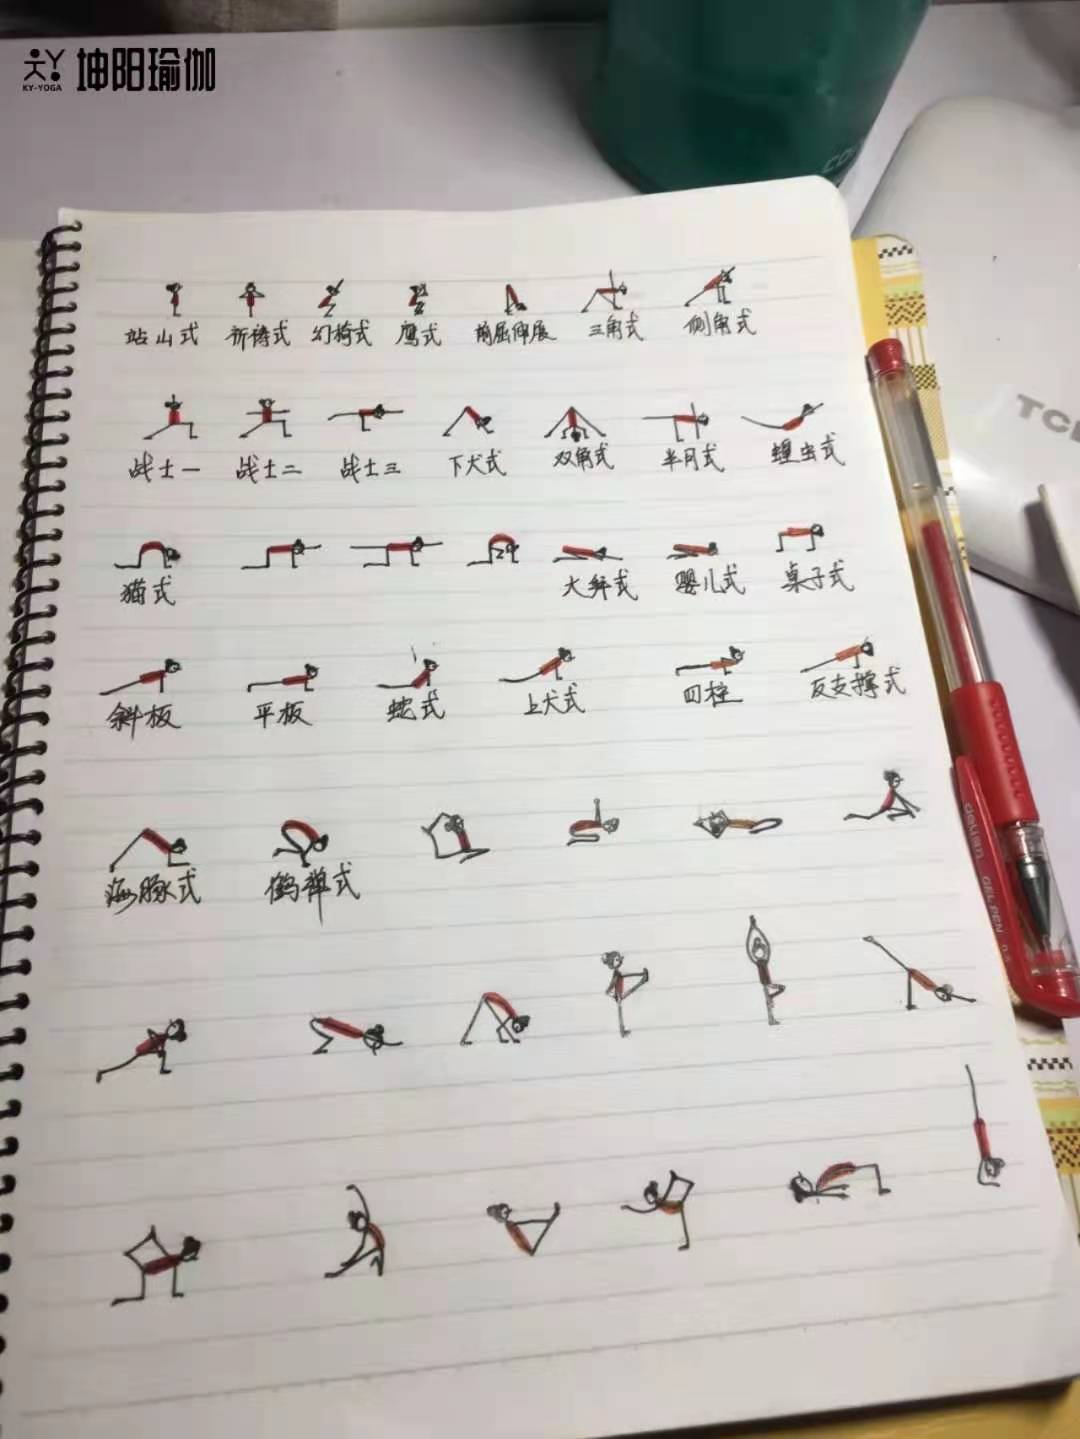 坤阳瑜伽
KY-YOGA
站山式 祈祷式 幻椅式 鹰式 前屈伸展 三角式 侧角式
战士一 战士二 战士三 下犬式 双角式 半月式 蝗虫式
猫式 大拜式 婴儿式 桌子式
斜板 平板 蛇式 上犬式 四柱 反支撑式
海豚式 鹤禅式
deli GELPEN 0.5